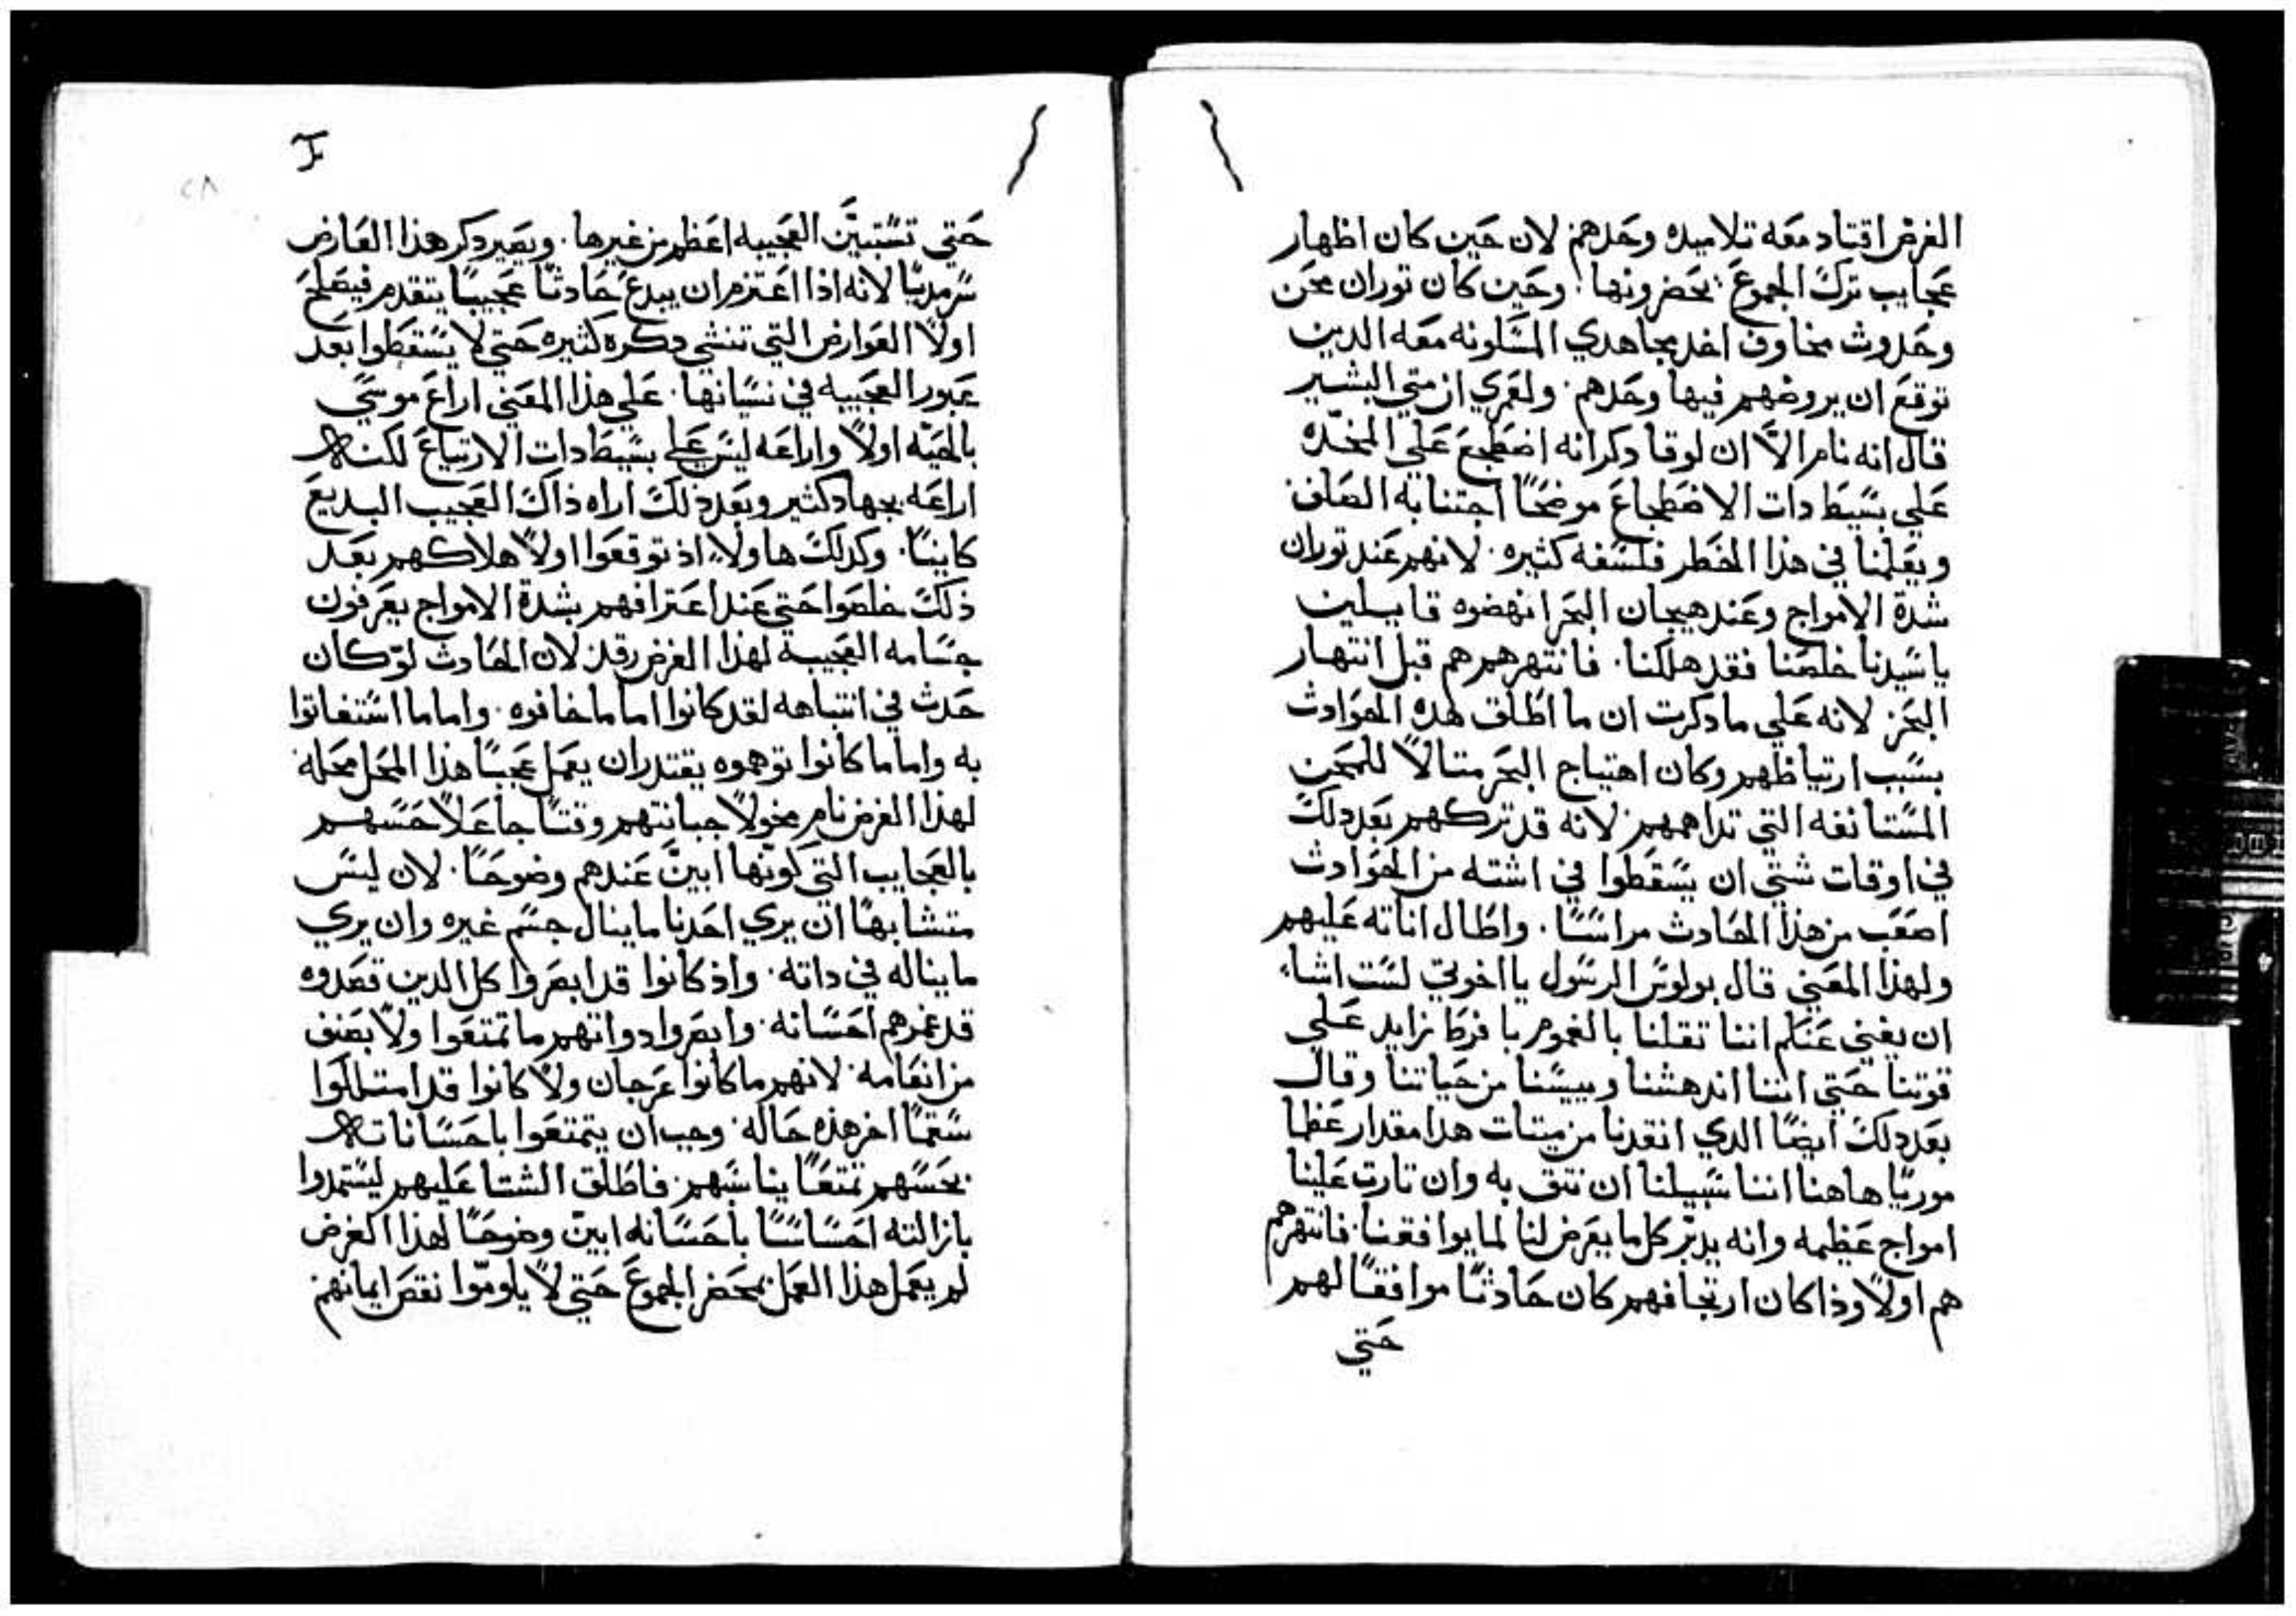 الغرض اقتاد معه تلاميده وحدهم لان حين كان اظهار
عجايب ترك الجموع يحضرونها. وحين كان توران محن
وحدوث مخاوف اخد مجاهدي المسكونه معه الدين
توقع ان يروضهم فيها وحدهم. ولعمري ان متي البشير
قال انه نام الا ان لوقا دكر انه اضطجع علي المخده
علي بسيط دات الاضطجاع موضحا اجتنابه الصلف
ويعلمنا في هذا الخطر فلسفه كثيره. لانهم عند توران
شدة الامواج وعند هيجان البحر انهضوه قايلين
ياسيدنا خلصنا فقد هلكنا. فانتهرهم هم قبل انتهار
البحر لانه علي مادكرت ان ما اطلق هده الحوادث
بسبب ارتياظهم وكان اهتياج البحر متالا للمحن
المستانفه التي تداهمهم لانه قد تركهم بعد دلك
في اوقات شتي ان يسقطوا في اشته من الحوادث
اصعب من هذا الحادث مراسا. واطال اناته عليهم
ولهذا المعني قال بولوس الرسول يااخوتي لست اشاء
ان يغبي عنكم اننا تقلنا بالغموم بافرط زايد علي
قوتنا حتي اننا اندهشنا وييسنا من حياتنا وقال
بعد دلك ايضا الدي انقدنا من ميتات هدا مقدار عظمها
موريا هاهنا اننا سبيلنا ان نتق به وان تارت علينا
امواج عظيمه وانه يدبر كل ما يعرض لنا لما يوافقنا. فانتهرهم
هم اولا وذا كان ارتجافهم كان حادثا موافقا لهم
حتي
٢٨
حتي تستبين العجيبه اعظم من غيرها. ويصير دكر هذا العارض
سرمديا لانه اذا اعتزم ان يبدع حادثا عجيبا يتقدم فيصلح
اولا العوارض التي تنشي دكره كثيره حتي لا يسقطوا بعد
عبور العجيبه في نسيانها. علي هذا المعني اراع موسي
بالحيه اولا واراعه ليس علي بسيط دات الارتياع لكنه
اراعه بجهاد كثير وبعد ذلك اراه ذاك العجيب البديع
كاينا. وكدلك هاولاء اذ توقعوا اولا هلاكهم بعد
ذلك خلصوا حتي عند اعترافهم بشدة الامواج يعرفون
جسامه العجيبة لهذا الغرض رقد لان الحادث لو كان
حدث في انتباهه لقد كانوا اماما خافوه. واماما استغاتوا
به واماما كانوا توهموه يقتدر ان يعمل عجبا هذا المحل محله
لهذا الغرض نام مخولا جبانتهم وقتا جاعلا حسهم
بالعجايب التي كونها ابين عندهم وضوحا. لان ليس
متشابها ان يري احدنا ماينال جسم غيره وان يري
مايناله في داته. واذ كانوا قد ابصروا كل الدين قصدوه
قد غمرهم احسانه. وابصروا دواتهم ماتمتعوا ولا بصنف
من انعامه. لانهم ماكانوا عرجان ولا كانوا قد امتلكوا
سقما اخر هذه حاله. وجب ان يتمتعوا باحساناته
بحسهم تمتعا يناسبهم. فاطلق الشتا عليهم ليستمدوا
بازالته احساسا باحسانه ابين وضوحا لهذا الغرض
لم يعمل هذا العمل بمحضر الجموع حتي لا يلوموا نقص ايمانهم